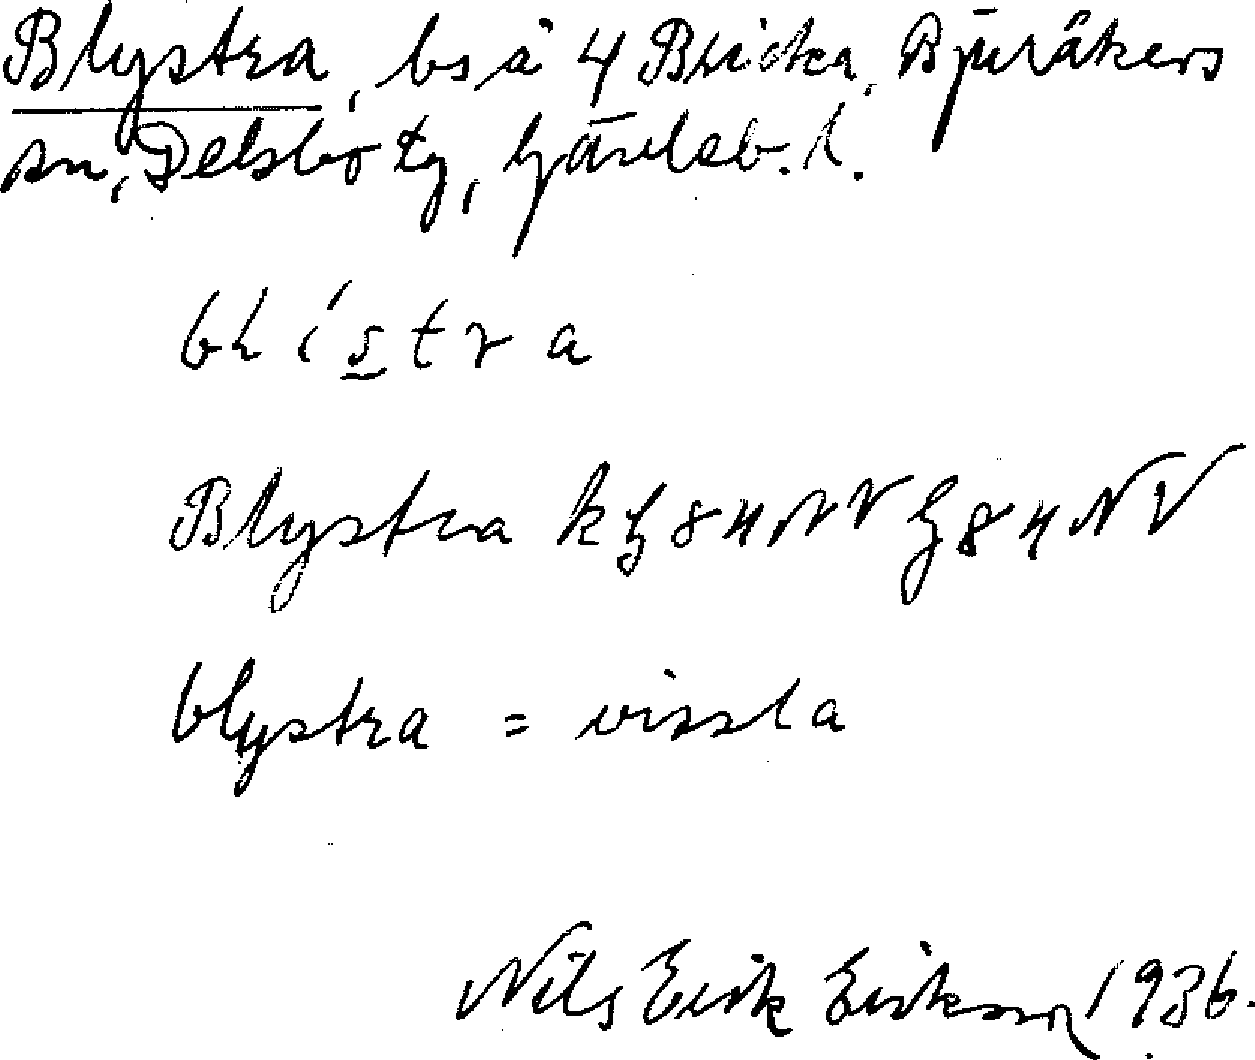 Blystra, bs å 4 Bricka, Bjuråkers
sn, Delsbo tg, Gävleb. l.
blístra
Blystra kg 84 NV Hg 84 NV
blystra = vissla
Nils Erik Eriksson 1936.